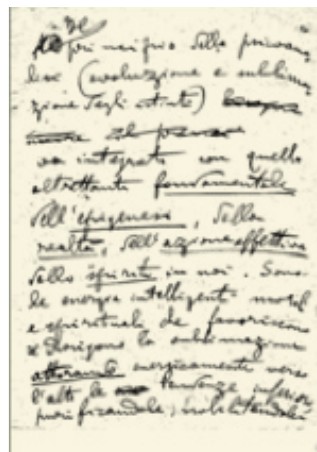 Il principio della psicoana
lisi (evoluzione e sublima
zione degli istinti)
va integrato con quello
altrettanto fondamentale
dell'epigenesi, della
realtà, dell'azione effettiva
dello spirito in noi. Sono
le energie intelligenti morali
e spirituali che favoriscono
e dirigono la sublimazione
attirando energicamente verso
l'alto le tendenze inferiori
purificandole, nobilitandole